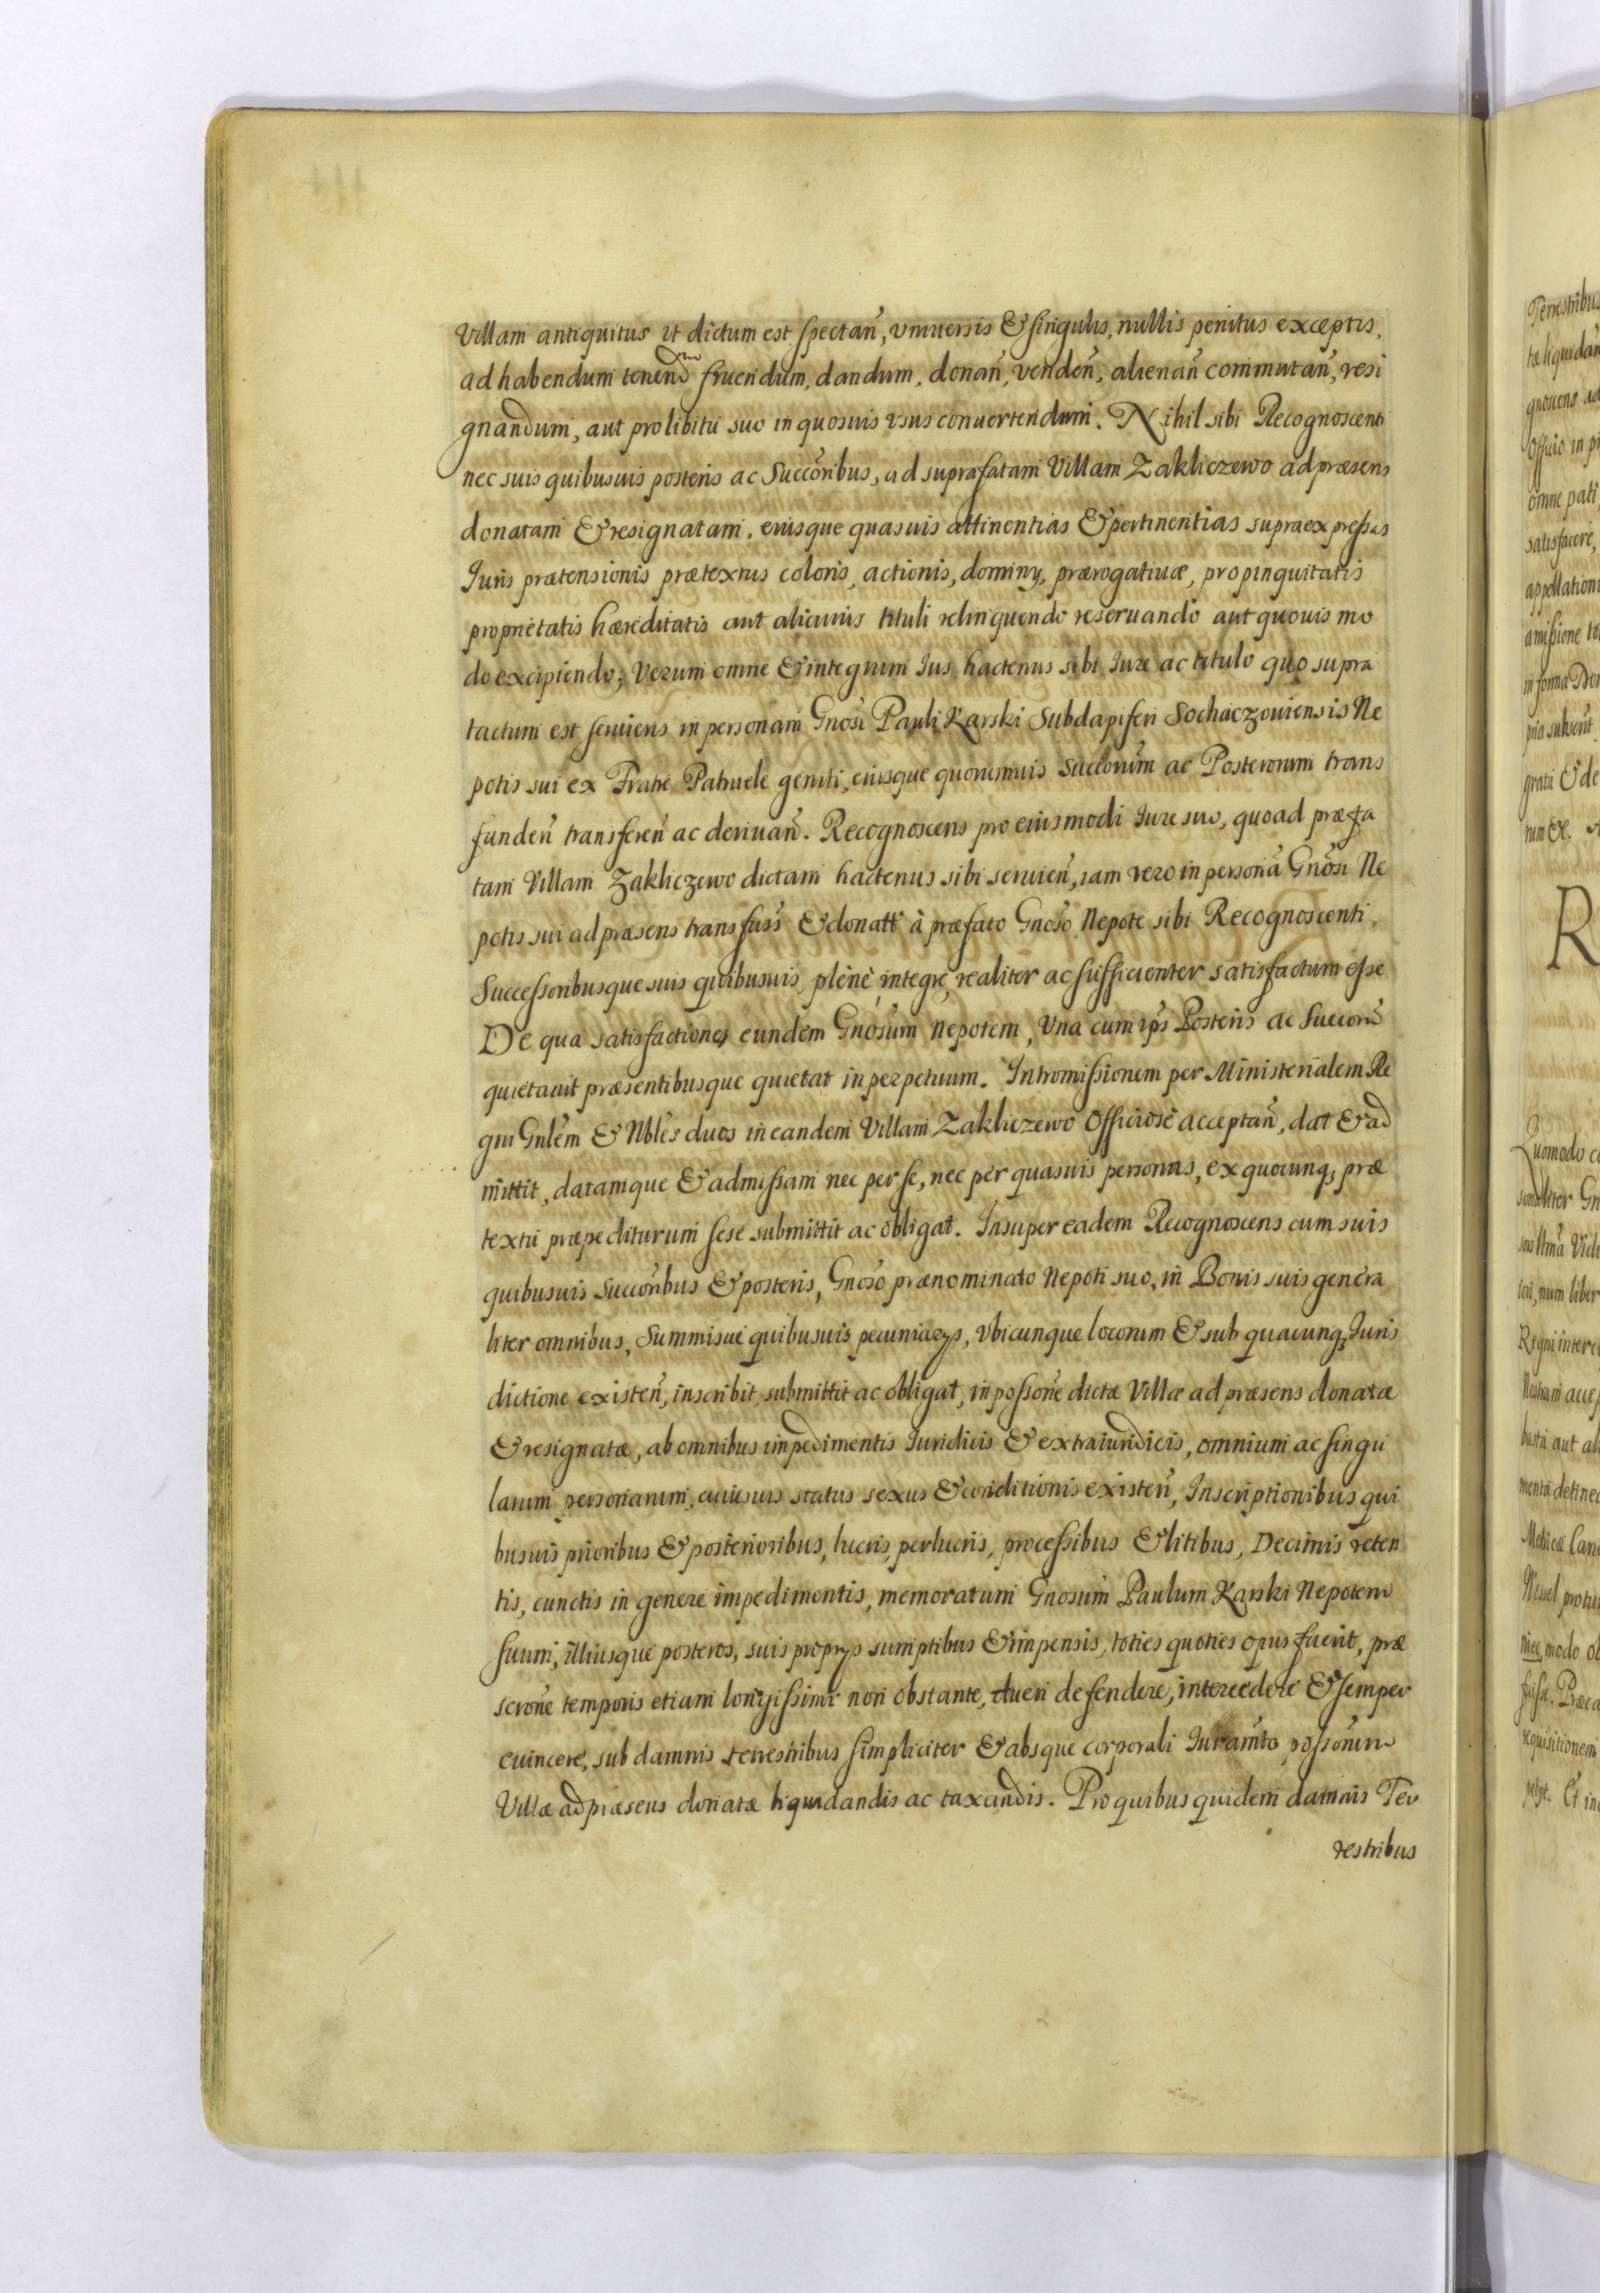 Villam antiquitus ut dictum est spectan̄, vniuersis & singulis, nullis penitus exceptis,
ad habendum tenendum fruendum, dandum, donan̄, venden̄, alienan̄ commutan̄, resi
gnandum, aut pro libitu suo in quosuis vsus conuertendum. Nihil sibi Recognoscenti
nec suis quibusuis posteris ac Succōribus, ad suprafatam Villam Zakliczewo ad præsens
donatam & resignatam, eiusque quasuis attinentias & pertinentias supra expressas
Iuris prætensionis prætextus coloris, actionis, dominÿ, prærogatiuæ, propinquitatis
proprietatis hæreditatis aut alicuius tituli relinquendo reseruando aut quouis mo
do excipiendo; Verum omne & integrum Ius hactenus sibi Iure ac titulo quo supra
tactum est seruiens in personam Gnosi Pauli Karski Subdapiferi Sochaczouiensis Ne
potis sui ex Fratre Patruele geniti, eiusque quorumuis Succorum̄ ac Posterorum trans
funden̄ transferen̄ ac deriuan̄. Recognoscens pro eiusmodi Iure suo, quoad præfa
tam Villam Zakliczewo dictam hactenus sibi seruien̄, iam vero in personā Gnōsi Ne
potis sui ad præsens transfuss̄ & donatt̄ à præfato Gnōso Nepote sibi Recognoscenti,
Successoribusque suis quibusuis, plenè integrè realiter ac sufficienter satisfactum esse
De qua satisfactione, eundem Gnōsum Nepotem, Vna cum ip̄s Posteris ac Succorib̄
quietauit præsentibusque quietat in perpetuum. Intromissionem per Ministerialem Re
gni Gnlēm & Nblēs duos in eandem Villam Zakliczewo Officiosè acceptan̄, dat & ad
mittit, datamque & admissam nec per se, nec per quasuis personas, ex quocunq, præ
textu præpediturum sese submittit ac obligat. Insuper eadem Recognoscens cum suis
quibusuis Succōribus & posteris, Gnōso prænominato Nepoti suo, in Bonis suis genera
liter omnibus, Summisue quibusuis pecuniarÿs, Vbicunque locorum & sub quacunq, Iuris
dictione existen̄, inscribit submittit ac obligat, in possōne dictæ Villæ ad præsens donatæ
& resignatæ, ab omnibus impedimentis Iuridicis & extraiuridicis, omnium ac singu
larum personarum, cuiusuis status sexus & conditionis existen̄, Inscriptionibus qui
busuis prioribus & posterioribus, lucris, perlucris, processibus & litibus, Decimis reten
tis, cunctis in genere impedimentis, memoratum Gnosum̄ Paulum Karski Nepotem
suum, illiusque posteros, suis proprÿs sumptibus & impensis, toties quoties opus fuerit, præ
scrōne temporis etiam longissimi non obstante, tueri defendere, intercedere & semper
euincere, sub damnis terrestribus simpliciter & absque corporali Iuramto possōnum
Villæ ad præsens donatæ liquidandis ac taxandis. Pro quibus quidem damnis Ter
restribus